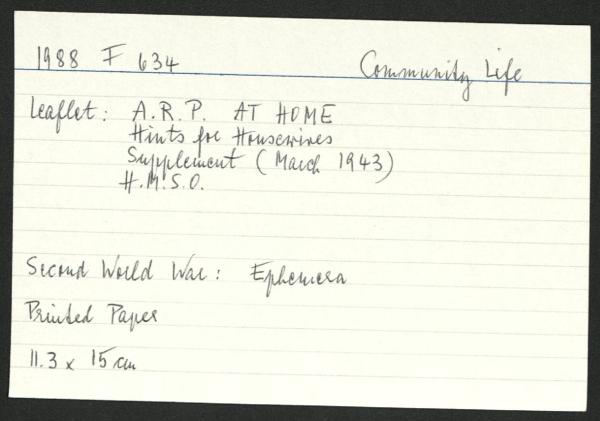 1988 F 634 Community Life
Leaflet: A.R.P. AT HOME
Hints for Housewives
Supplement (March 1943)
H.M.S.O.
Second World War: Ephemera
Printed Paper
11.3 x 15 cm